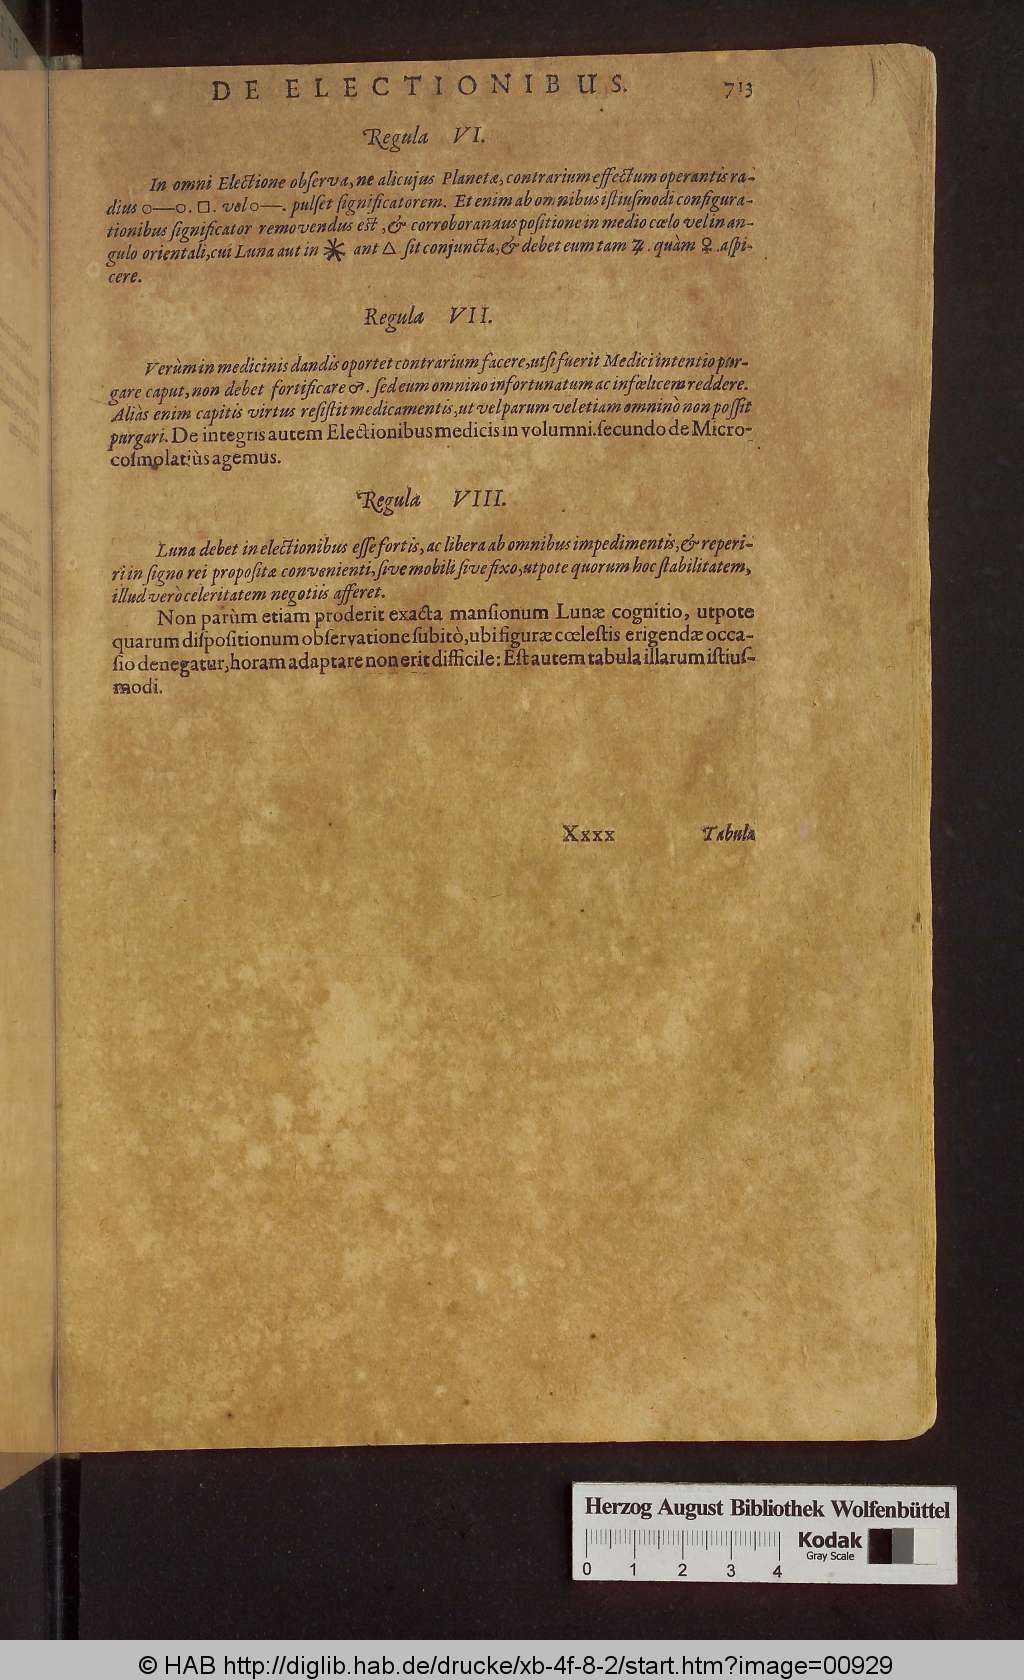 DE ELECTIONIBUS. 713
Regula VI.
In omni Electione obſerva, ne alicujus Planetæ, contrarium effectum operantis ra-
dius ☍. □. vel ☌. pulſet ſignificatorem. Et enim ab omnibus iſtiuſmodi configura-
tionibus ſignificator removendus eſt, & corroborandus poſitione in medio cœlo vel in an-
gulo orientali, cui Luna aut in ⚹ ant △ ſit conjuncta, & debet eum tam ♃. quàm ♀. aſpi-
cere.
Regula VII.
Verùm in medicinis dandis oportet contrarium facere, ut ſi fuerit Medici intentio pur-
gare caput, non debet fortificare ♂. ſed eum omnino infortunatum ac infœlicem reddere.
Aliàs enim capitis virtus reſiſtit medicamentis, ut vel parum vel etiam omninò non poſſit
purgari. De integris autem Electionibus medicis in volumni. ſecundo de Micro-
coſmo latiùs agemus.
Regula VIII.
Luna debet in electionibus eſſe fortis, ac libera ab omnibus impedimentis, & reperi-
ri in ſigno rei propoſitæ convenienti, ſive mobili ſive fixo, utpote quorum hoc ſtabilitatem,
illud verò celeritatem negotiis afferet.
Non parùm etiam proderit exacta manſionum Lunæ cognitio, utpote
quarum diſpoſitionum obſervatione ſubitò, ubi figuræ cœleſtis erigendæ occa-
ſio denegatur, horam adaptare non erit difficile: Eſt autem tabula illarum iſtiuſ-
modi.
Xxxx Tabula
Herzog August Bibliothek Wolfenbüttel
Kodak
Gray Scale
0 1 2 3 4
© HAB http://diglib.hab.de/drucke/xb-4f-8-2/start.htm?image=00929